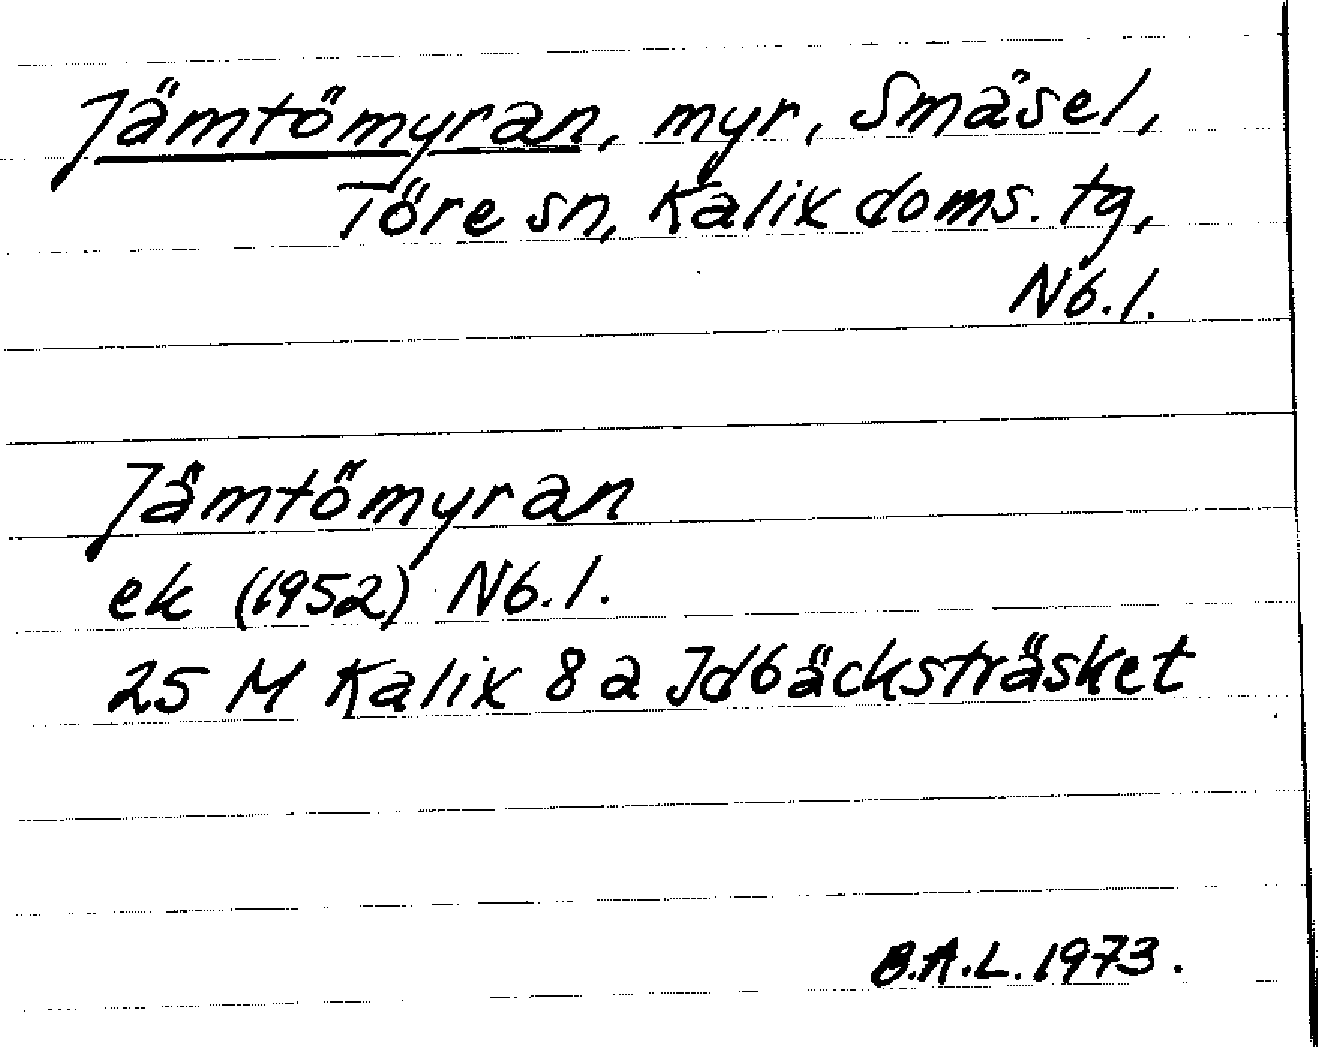 Jämtömyran, myr, Småsel,
Töre sn, Kalix doms. tg,
Nb. l.
Jämtömyran
ek (1952) Nb. l.
25 M Kalix 8 a Idbäcksträsket
B.A.L. 1973.